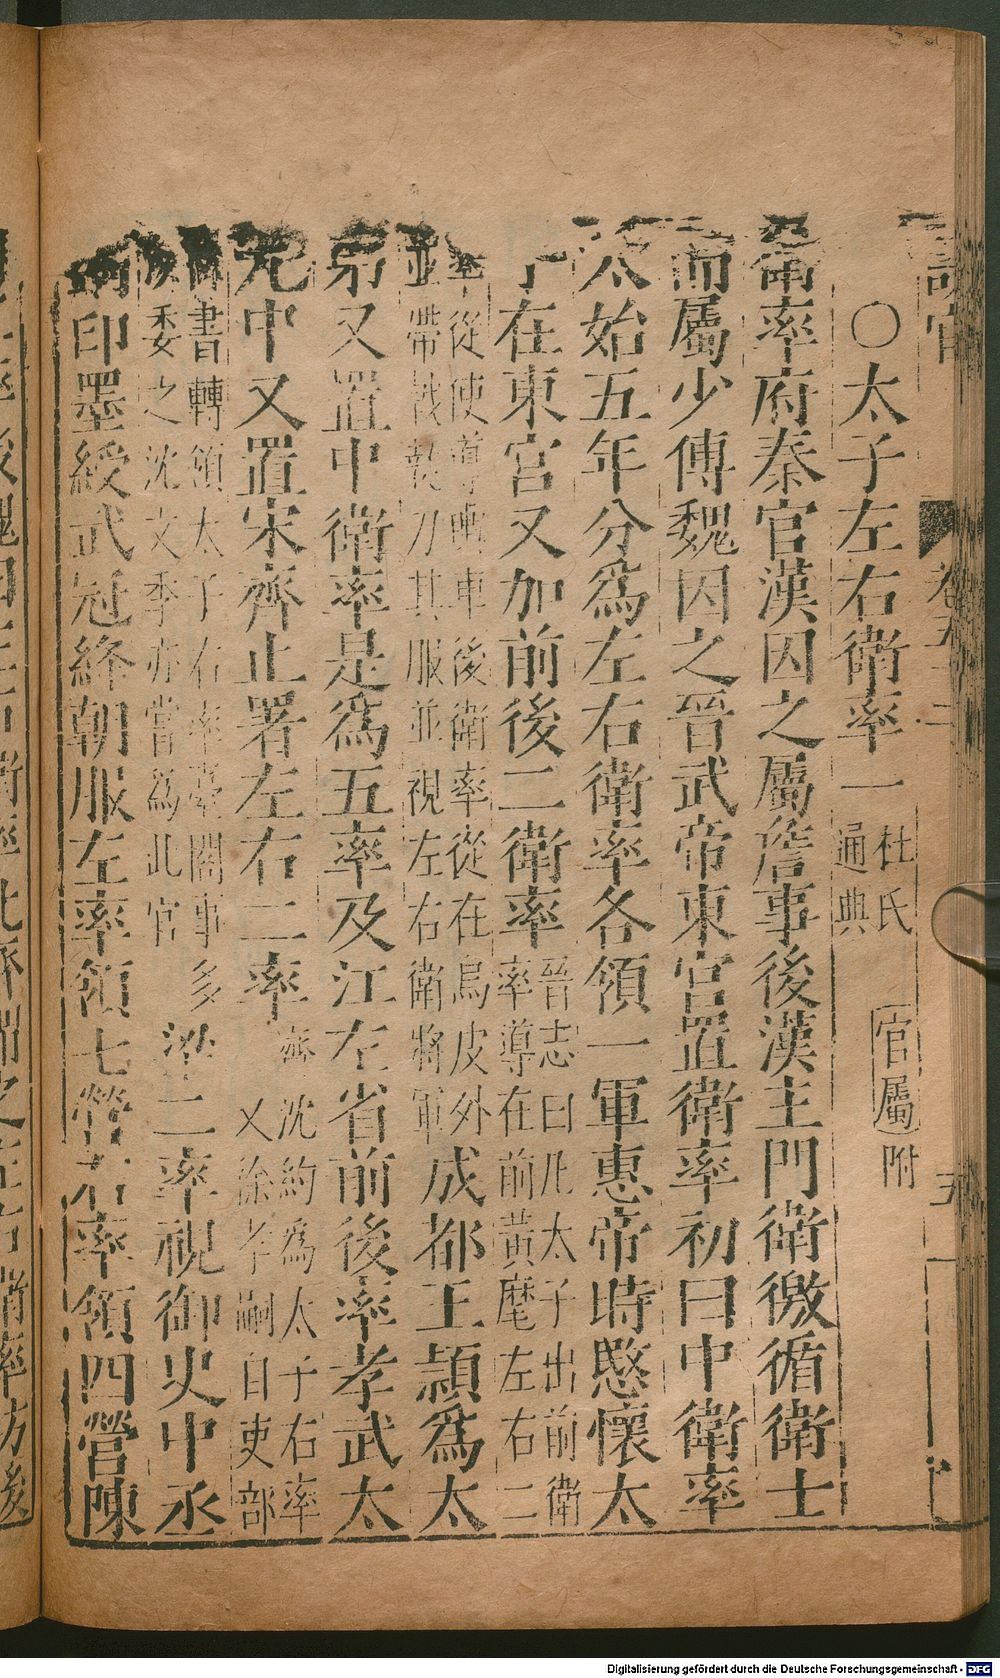 ○太子左右衛率一 杜氏通典 官屬附
衛率府秦官漢因之屬詹事後漢主門衛徼循衛士
而屬少傅魏因之晉武帝東宮置衛率初曰中衛率
太始五年分為左右衛率各領一軍惠帝時愍懷太
子在東宮又加前後二衛率 晉志曰凡太子出前衛率導在前黃麾左右二
率從使導輿車後衛率從在烏皮外並帶戟執刀其服並視左右衛將軍 成都王頴為太
弟又置中衛率是為五率及江左省前後率孝武太
元中又置宋齊止署左右二率 齊沈約為太子右率又徐孝嗣自吏部
尚書轉領太子右率臺閣事多以委之沈文季亦嘗為此官 梁二率視御史中丞
銅印墨綬武冠絳朝服左率領七營右率領四營陳
卷五十二
五
Digitalisierung gefördert durch die Deutsche Forschungsgemeinschaft - DFG